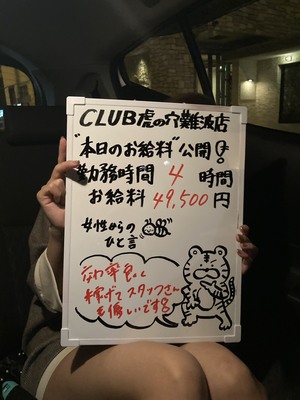 CLUB虎の穴難波店
"本日のお給料"公開!
勤務時間 4 時間
お給料 49,500円
女性からの
ひと言
効率良く
稼げてスタッフさん
も優しいです